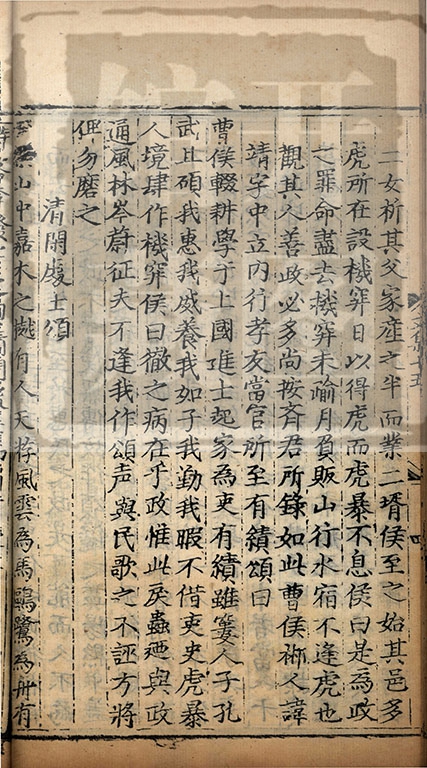 二女析其父家產之半而業二壻侯至之始其邑多
虎所在設機穽日以得虎而虎暴不息侯曰是為政
之罪命盡去機穽未踰月負販山行水宿不逢虎也
觀其人善政必多尚按斉君所錄如此曹侯彬人諱
靖字中立內行孝友當官所至有績頌曰
曹侯輟耕學于上國進士起家為吏有績雖窶人子孔
武且碩我惠我威養我如子我勤我暇不借吏史虎暴
人境肆作機穽侯曰徹之病在乎政惟此戾蟲廼與政
通風林岑蔚征夫不逢我作頌声與民歌之不誣方將
俾勿磨之
清閑處士頌
山中嘉木之樾有人天游風雲為馬鷗鷺為舟有